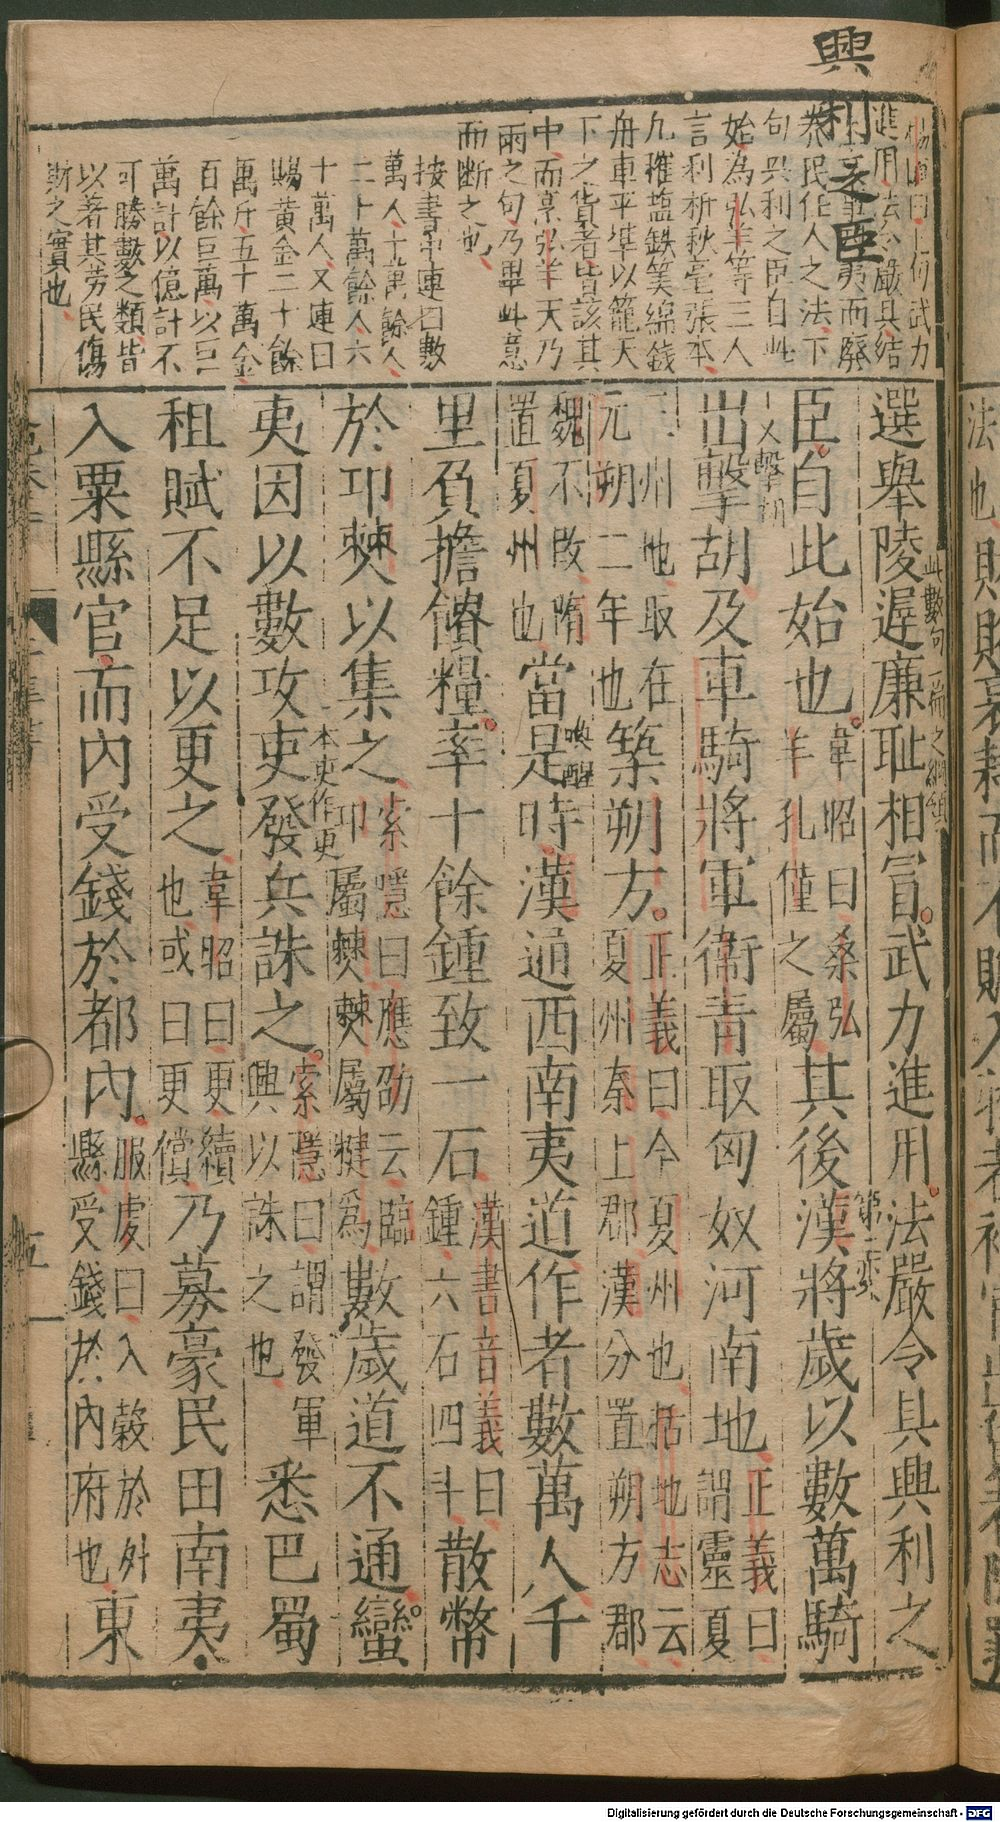 興利之臣
進用法令嚴具結
夷而廢
恭民任人之法下
句興利之臣自此
始為弘羊等三人
言利析秋毫張本
凡榷塩鉄筭緡錢
舟車平準以籠天
下之貨者皆該其
中而烹弘羊天乃
雨之句乃畢此意
而斷之也
按書中連曰數
萬人十萬餘人
二十萬餘人六
十萬人又連曰
賜黃金二十餘
萬斤五十萬金
百餘巨萬以巨
萬計以億計不
可勝數之類皆
以著其勞民傷
財之實也
選舉陵遲廉耻相冒武力進用法嚴令具興利之
此數句一篇之綱領
臣自此始也韋昭曰桑弘羊孔僅之屬其後漢將歲以數萬騎
又擊胡
出擊胡及車騎將軍衞青取匈奴河南地正義曰謂靈夏
三州地取在元朔二年也築朔方正義曰今夏州也括地志云夏州秦上郡漢分置朔方郡
魏不改隋置夏州也當是時漢通西南夷道作者數萬人千
喚醒
里負擔饋糧率十餘鍾致一石漢書音義曰鍾六石四斗散幣
於卭僰以集之索隱曰應劭云臨卭屬僰僰屬犍爲數歲道不通蠻
夷因以數攻吏發兵誅之索隱曰謂發軍興以誅之也悉巴蜀
本吏作更
租賦不足以更之韋昭曰更續也或曰更償乃募豪民田南夷
入粟縣官而內受錢於都內服虔曰入穀於外縣受錢於內府也東
五
法也
Digitalisierung gefördert durch die Deutsche Forschungsgemeinschaft - DFG